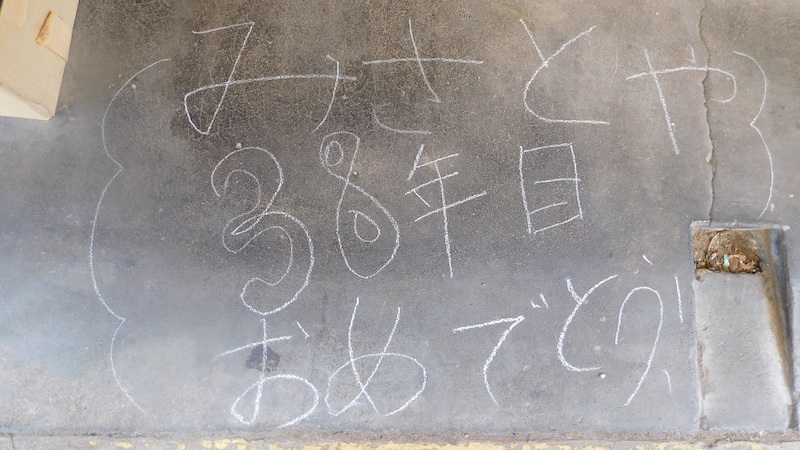 みさとや
38年目
おめでとう!